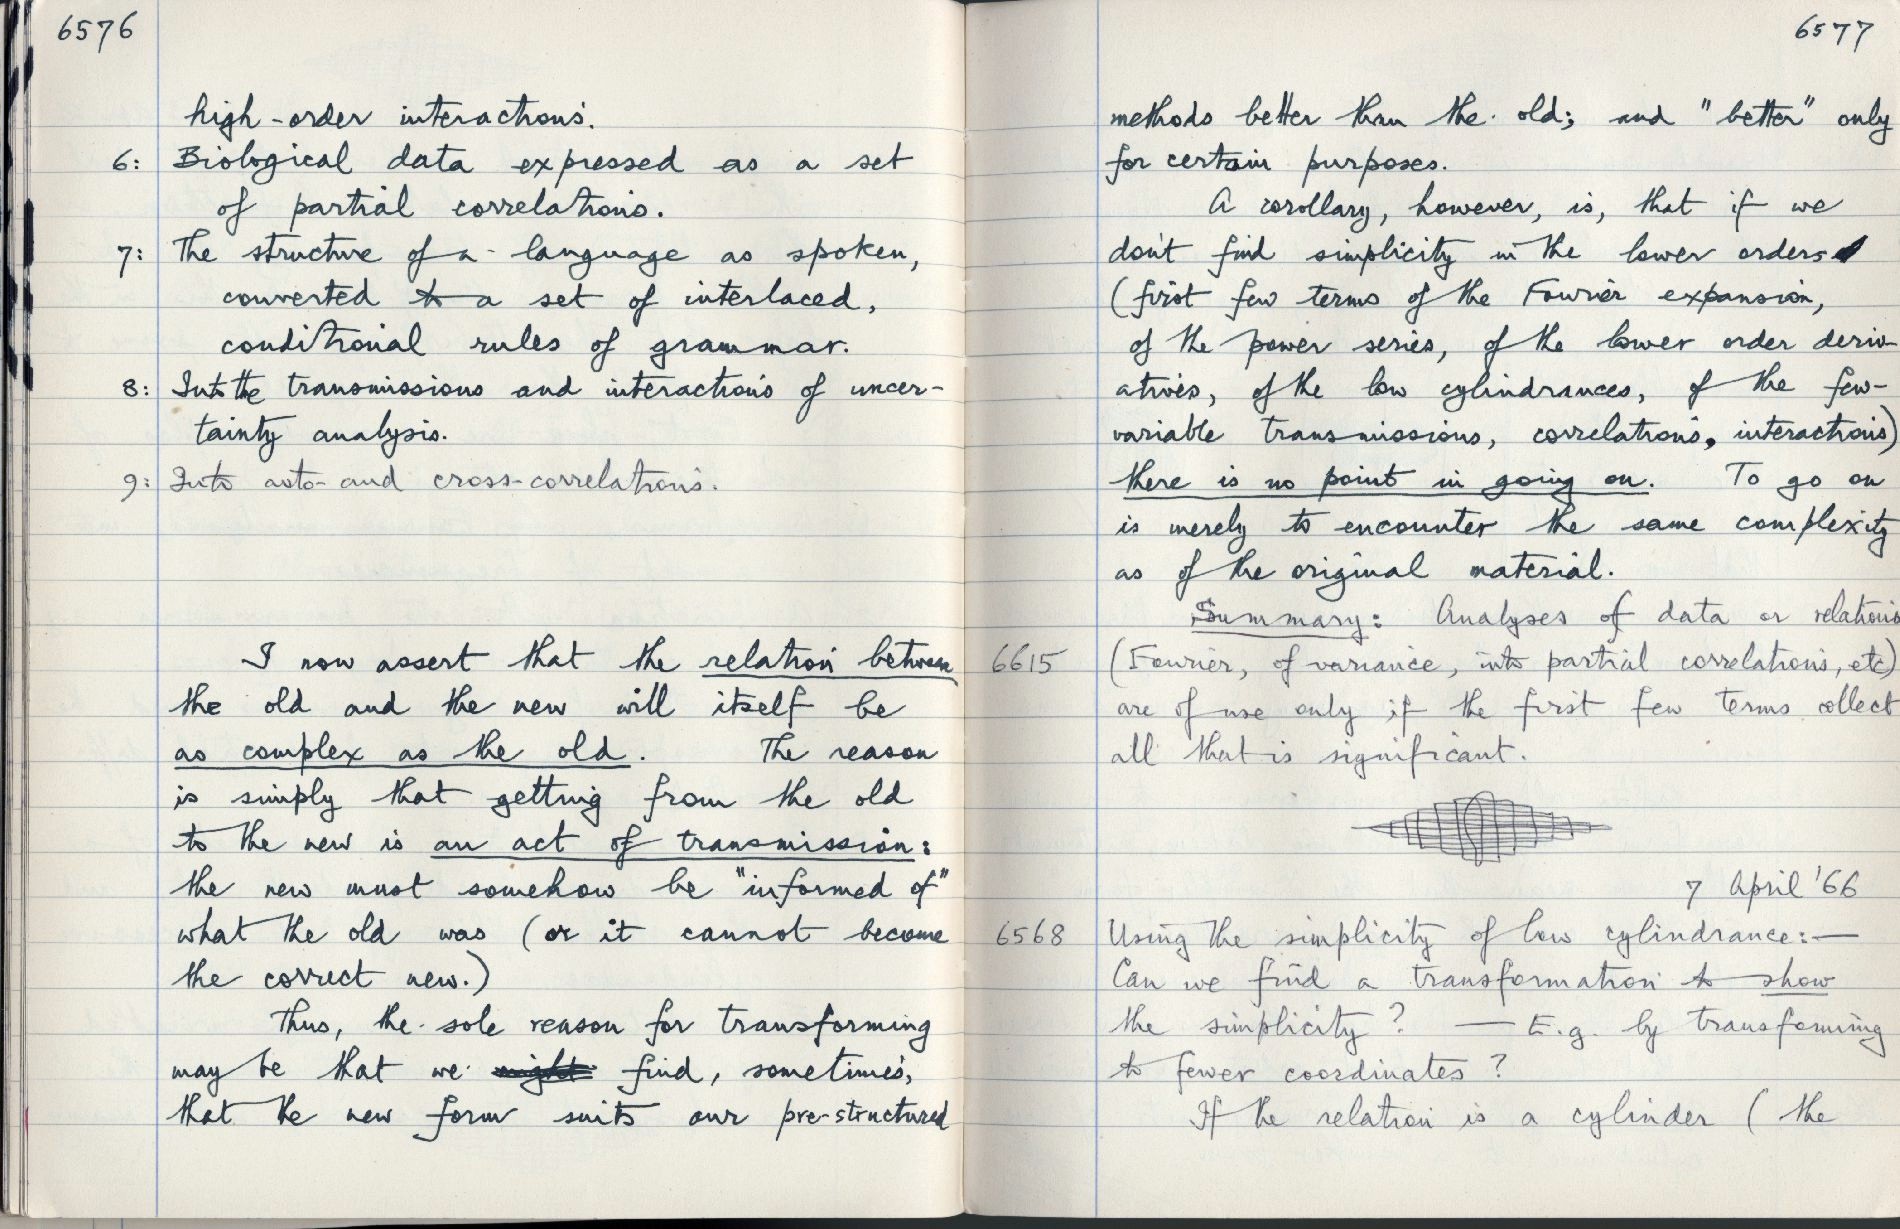 6576
high-order interactions.
6: Biological data expressed as a set
of partial correlations.
7: The structure of a language as spoken,
converted to a set of interlaced,
conditional rules of grammar.
8: Into the transmissions and interactions of uncer-
tainty analysis.
9: Into auto- and cross-correlations.
I now assert that the relation between
the old and the new will itself be
as complex as the old. The reason
is simply that getting from the old
to the new is an act of transmission:
the new must somehow be "informed of"
what the old was (or it cannot become
the correct new.)
Thus, the sole reason for transforming
may be that we might find, sometimes,
that the new form suits our pre-structured
6577
methods better than the old; and "better" only
for certain purposes.
A corollary, however, is, that if we
don't find simplicity in the lower orders
(first few terms of the Fourier expansion,
of the power series, of the lower order deriv-
atives, of the low cylindrances, of the few-
variable transmissions, correlations, interactions)
there is no point in going on. To go on
is merely to encounter the same complexity
as of the original material.
Summary: Analyses of data or relations
6615 (Fourier, of variance, into partial correlations, etc)
are of use only if the first few terms collect
all that is significant.
7 April '66
6568 Using the simplicity of low cylindrance:—
Can we find a transformation to show
the simplicity? — E.g. by transforming
to fewer coordinates?
If the relation is a cylinder (the